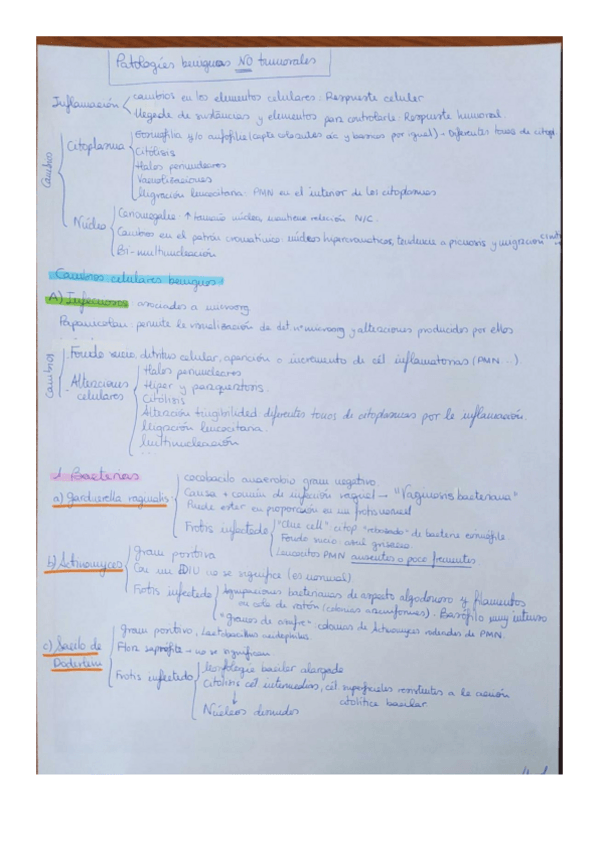 Patologías benignas NO tumorales
Inflamación cambios en los elementos celulares: Respuesta celular
llegada de sustancias y elementos para controlarla: Respuesta humoral.
Cambios
Citoplasma Eosinofilia y/o anfofilia (capta colorantes ác y básicos por igual) → Diferentes tonos de citopl.
Citólisis
Halos perinucleares
Vacuolizaciones
Migración leucocitaria: PMN en el interior de los citoplasmas
Núcleo Cariomegalia: ↑ tamaño núcleo, mantiene relación N/C.
Cambios en el patrón cromatínico: núcleos hipercromáticos, tendencia a picnosis y migración
Bi-multinucleación
Cambios celulares benignos:
A) Infecciosos asociados a microorg
Papanicolau: permite la visualización de det. nº microorg y alteraciones producidas por ellos
Cambios
Fondo sucio, detritus celular, aparición o incremento de cél inflamatorias (PMN...).
Alteraciones celulares
Halos perinucleares
Hiper y paraqueratosis.
Citólisis
Alteración tingibilidad diferentes tonos de citoplasmas por la inflamación.
Migración leucocitaria.
Multinucleación
...
1. Bacterias
a) Gardnerella vaginalis cocobacilo anaerobio gram negativo.
Causa + común de infección vaginal → "Vaginosis bacteriana"
Puede estar en proporción en un frotis normal
Frotis infectado "Clue cell": citop "rebosado" de bacterias eosinófila
Fondo sucio: azul grisáceo
Leucocitos PMN ausentes o poco frecuentes
b) Actinomyces gram positiva
Con un DIU no se significa (es normal).
Frotis infectado Agrupaciones bacterianas de aspecto algodonoso y filamentos
ou cola de ratón (colonias araneiformes). Basófilo muy intenso
"granos de azufre": colonias de Actinomyces rodeadas de PMN.
c) Bacilo de Döderlein gram positivo, Lactobacillus acidophilus.
Flora saprófita → no se significan
Frotis infectado Morfología bacilar alargada
Citólisis cél intermedias, cél superficiales resistentes a la acción
citolítica bacilar
↓
Núcleos desnudos